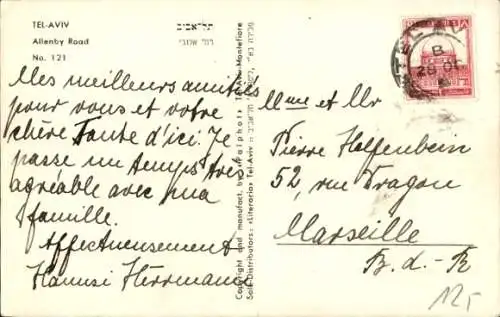 TEL-AVIV
Allenby Road
No. 121
תל־אביב
רח' אלנבי
Mes meilleurs amitiés
pour vous et votre
chère Tante d'ici. Je
passe un temps très
agréable avec ma
famille.
Affectueusement
Hannsi Herrmann
Copyright and manufact. by »Palphot« Tel-Aviv-Montefiore
Sole Distributors: «Literaria» Tel-Aviv
TEL AVIV
B
28 OC
Mme et Mr
Pierre Helfenbein
52, rue Dragon
Marseille
B. d.-R
125